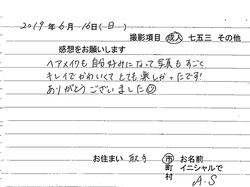 2019年 6月 16日(日)
撮影項目 成人 七五三 その他
感想をお願いします
ヘアメイクも自分好みになって写真もすごく
キレイでかわいくてとても楽しかったです!
ありがとうございました☺
お住まい 取手 市 町 村 お名前 イニシャルで A.S